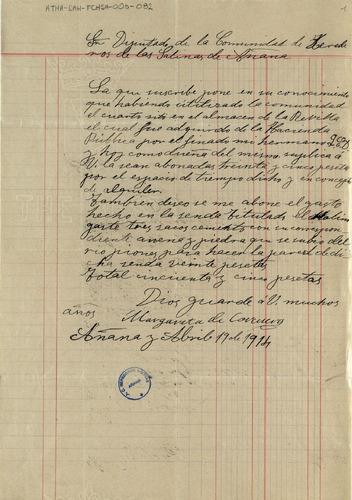 ATHA-DAH-FCHSA-005-082
1
Sr Diputado de la Comunidad de Herede
ros de las Salinas de Añana
La que suscribe pone en su conocimiento
que habiendo utilizado la comunidad
el cuarto sito en el almacen de la Revilla
el cual fue adquirido de la Hacienda
Publica por el finado mi hermano
y hoy como dueña del mismo suplica á
V. la sean abonadas treinta y cinco pesetas
por el espacio de tiempo dicho y en concepto
de alquiler.
Tambien deseo se me abone el gasto
hecho en la senda titulada el
gasté tres sacos cemento con su correspon
diente arena y piedra que se subió del
rio piones para hacer la pared de di
cha senda veinte pesetas
Total cincuenta y cinco pesetas
Dios guarde á V. muchos
años
Margarita de
Añana y Abril 19 de 1914